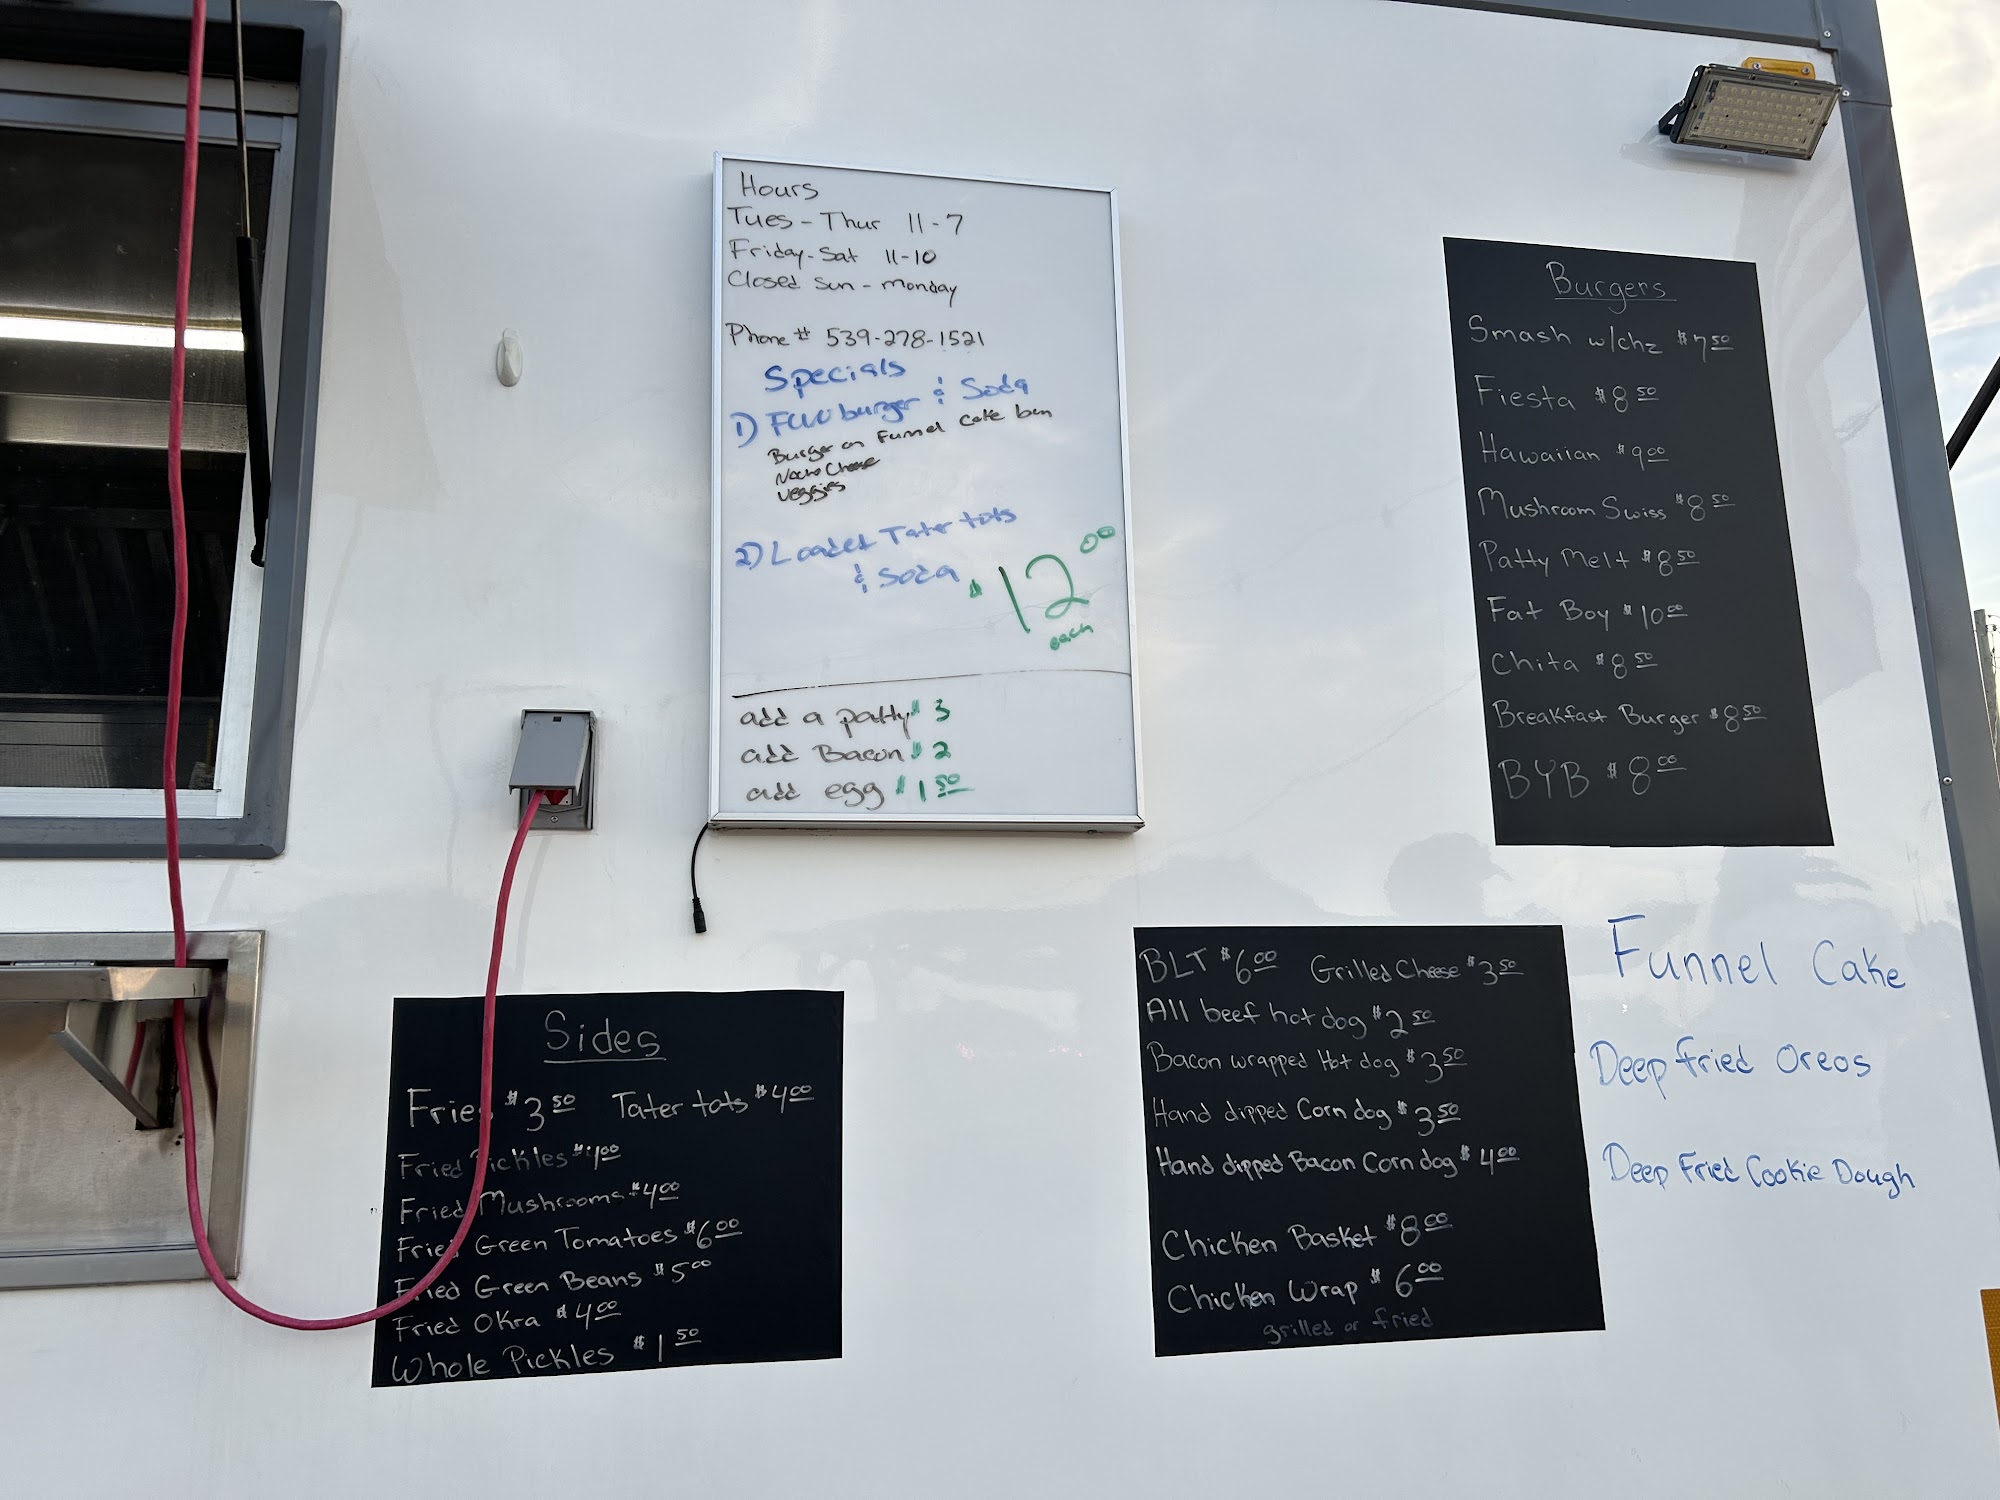 Hours
Tues - Thur 11-7
Friday-Sat 11-10
Closed Sun - monday
Phone # 539-278-1521
Specials
burger & Soda
Burger on Funnel Cake bun
Nacho Cheese
veggies
2) Loaded Tater tots
& Soda $12 00
each
add a patty $3
add Bacon $2
add egg $1 50
Burgers
Smash w/chz $7 50
Fiesta $8 50
Hawaiian $9 00
Mushroom Swiss $8 50
Patty Melt $8 50
Fat Boy $10 00
Chita $8 50
Breakfast Burger $8 50
BYB $8 00
Sides
Fries $3 50 Tater tots $4 00
Fried Pickles $4 00
Fried Mushrooms $4 00
Fried Green Tomatoes $6 00
Fried Green Beans $5 00
Fried Okra $4 00
Whole Pickles $1 50
BLT $6 00 Grilled Cheese $3 50
All beef hot dog $2 50
Bacon wrapped Hot dog $3 50
Hand dipped Corn dog $3 50
Hand dipped Bacon Corn dog $4 00
Chicken Basket $8 00
Chicken Wrap $6 00
grilled or fried
Funnel Cake
Deep fried Oreos
Deep Fried Cookie Dough